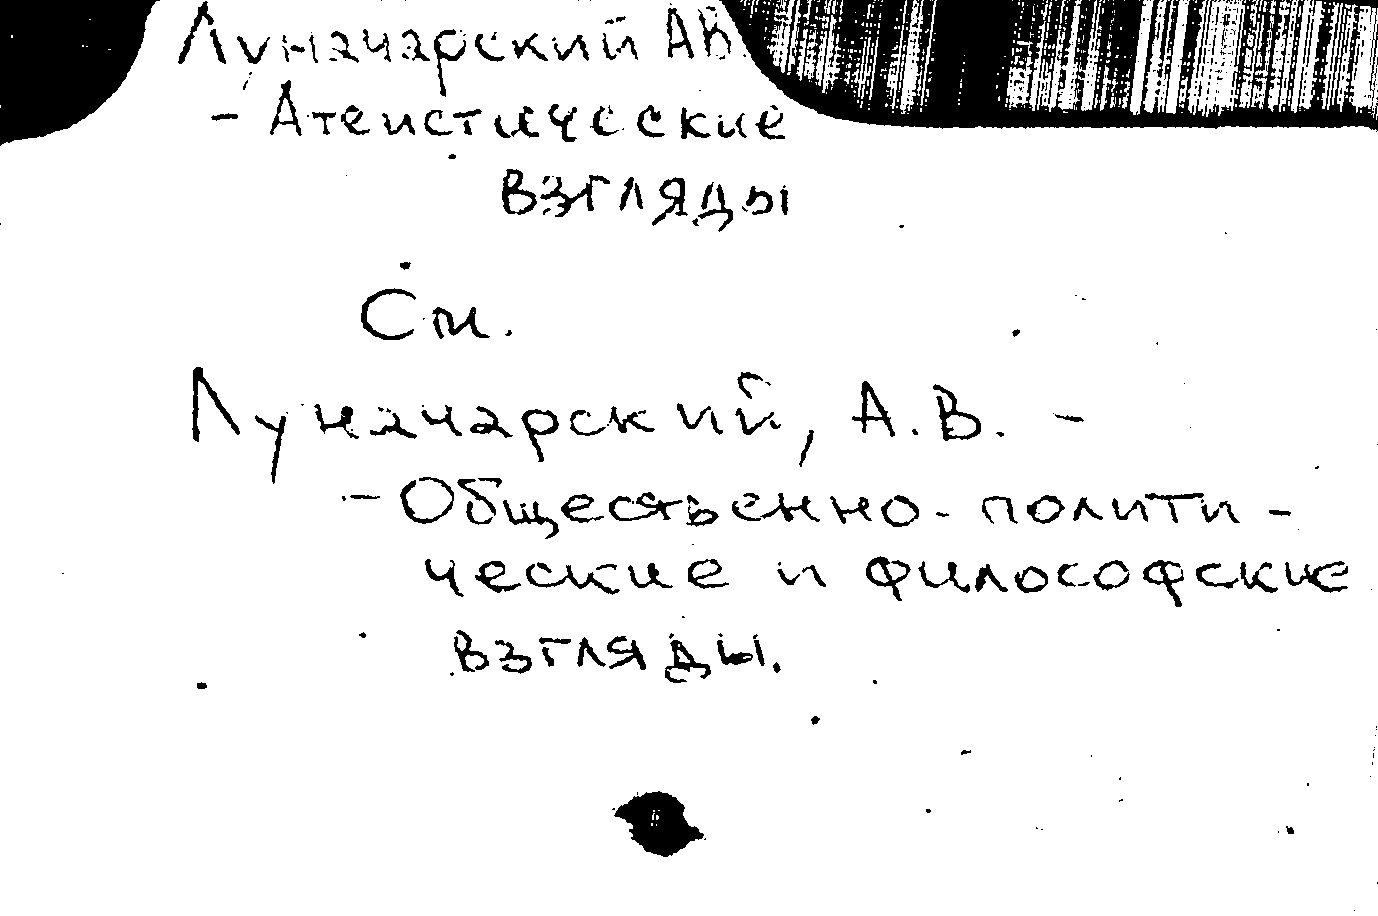 Луначарский АВ.
- Атеистические
взгляды
См.
Луначарский, А.В. -
- Общественно-полити-
ческие и философские
взгляды.